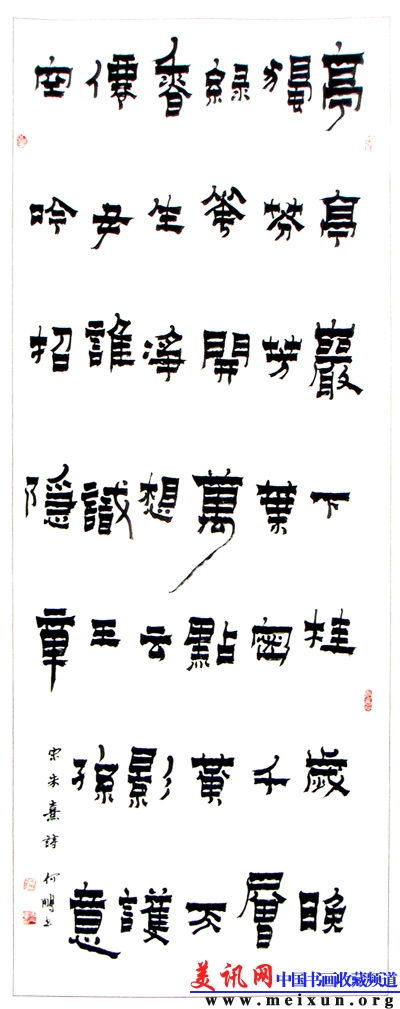 亭亭巖下桂歲晚
獨芬芳葉密千層
綠花開萬點黃天
香生淨想云影護
僊誰識王孫意
空吟招隱章
宋朱熹詩 何书
美讯网 中国书画收藏频道
www.meixun.org